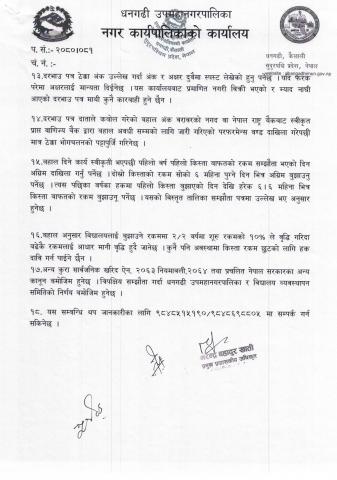 धनगढी उपमहानगरपालिका
नगर कार्यपालिकाको कार्यालय
प. सं.:-२०८०।०८१
च. नं.:-
धनगढी, कैलाली
सुदूरपश्चिम प्रदेश, नेपाल
१३.दरभाउ पत्र ठेक्का अंक उल्लेख गर्दा अंक र अक्षर दुवैमा स्पष्ट लेखेको हुनु पर्नेछ । यदि फरक
परेमा अक्षरलाई मान्यता दिईनेछ । यस कार्यालयबाट प्रमाणित नगरी बिक्री भएको र म्याद नाघी
आएको दरभाउ पत्र माथी कुनै कारबाही हुने छैन ।
१४.दरभाउ पत्र दाताले कबोल गरेको बहाल अंक बराबरको नगद वा नेपाल राष्ट्र बैंकबाट स्वीकृत
प्राप्त वाणिज्य बैंक द्वारा बहाल अवधी सम्मको लागि जारी गरिएको परफरमेन्स बण्ड दाखिला गरेपछी
मात्र ठेक्का भोगचलनको पट्टापुर्जी गरिनेछ ।
१५.बहाल दिने कार्य स्वीकृती भएपछी पहिलो वर्ष पहिलो किस्ता वाफतको रकम सम्झौता भएको दिन
अग्रिम दाखिला गर्नु पर्नेछ । दोस्रो किस्ताको रकम ६ महिना पुग्ने दिन भित्र अग्रिम बुझाउनु
पर्नेछ । त्यस पछिका वर्षका हकमा पहिलो किस्ता बुझाएको दिन देखि हरेक ६।६ महिना भित्र
किस्ता वाफतको रकम बुझाउनु पर्नेछ । यसको बिस्तृत तालिका सम्झौता पत्रमा उल्लेख भए अनुसार
हुनेछ ।
१६.बहाल अनुसार बिद्यालयलाई बुझाउने रकममा २/२ वर्षमा शुरु रकमको १०% ले बृद्धि गरिदा
बढेकै रकमलाई आधार मानी बृद्धी हुदै जानेछ । कुनै पनि अवस्थामा किस्ता रकम छुटको लागि हक
दावि गर्न पाईने छैन ।
१७.अन्य कुरा सार्वजनिक खरिद ऐन, २०६३ नियमावली,२०६४ तथा प्रचलित नेपाल सरकारका अन्य
कानून बमोजिम हुनेछ । त्रिपक्षिय सम्झौता गर्दा धनगढी उपमहानगरपालिका र बिद्यालय व्यवस्थापन
समितिको निर्णय बमोजिम हुनेछ ।
१८. यस सम्बन्धि थप जानकारीका लागि ९८४८५१५१९०/९८४८६९८८०५ मा सम्पर्क गर्न
सकिनेछ ।
बहादुर खाती
प्रमुख प्रशासकीय अधिकृत